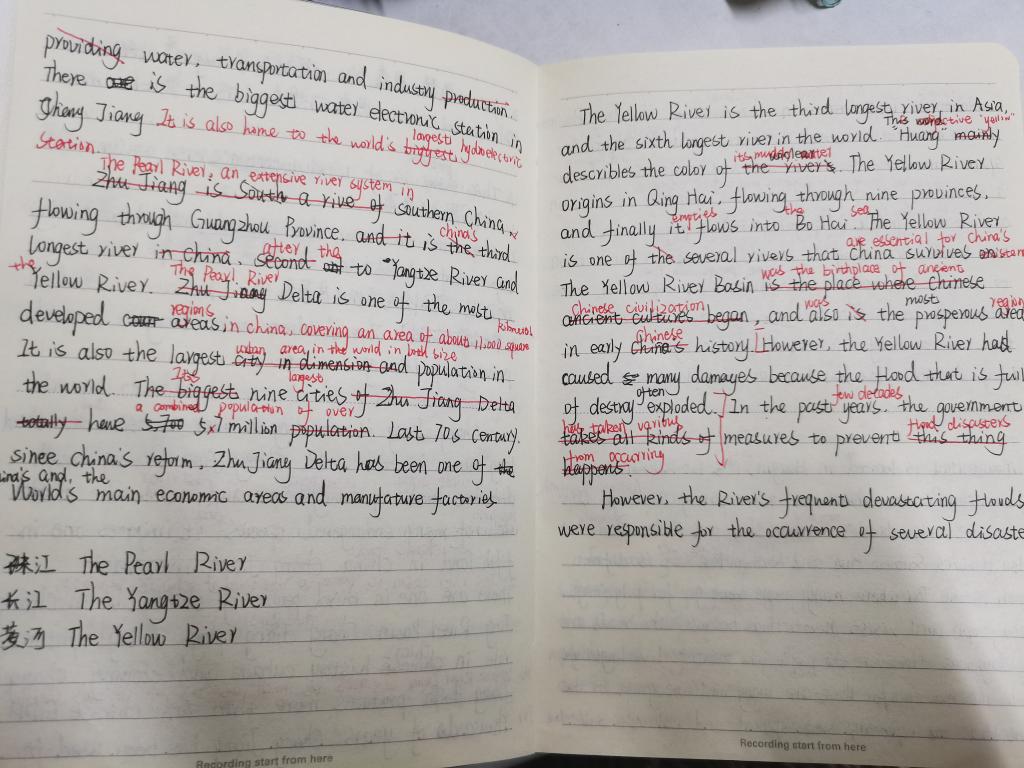 providing water, transportation and industry production.
There are is the biggest water electronic station in
Sheng Jiang It is also home to the world's biggest hydroelectric
largest
station
The Pearl River, an extensive river system in
Zhu Jiang is South a rive of southern China,
flowing through Guangzhou Province, and it is the third
china's
longest river in China. second to Yangtze River and
after the
the
Yellow River. Zhu Jiang Delta is one of the most
The Pearl River
developed areas, in china, covering an area of about 11,000 square
regions
It is also the largest city in dimension and population in
urban area in the world in both size
the world. The biggest nine cities of Zhu Jiang Delta
Its largest
totally have 5,700 5.7 million population. Last 70's century.
a combined population of over
sinee China's reform, Zhu Jiang Delta has been one of the
and, the
World's main economic areas and manufature factories
珠江 The Pearl River
长江 The Yangtze River
黄河 The Yellow River
Recording start from here
The Yellow River is the third longest river in Asia,
and the sixth longest river in the world. "Huang" mainly
"yellow"
describles the color of the river's. The Yellow River
origins in Qing Hai, flowing through nine provinces,
and finally it flows into Bo Hai. The Yellow River
empties the sea
is one of the several rivers that China survives on
are essential for China's
The Yellow River Basin is the place where Chinese
was the birthplace of ancient
ancient cultures began, and also is the prosperous area
Chinese civilization was most region
in early China's history. However, the Yellow River had
Chinese
caused many damages because the flood that is full
of destroy exploded. In the past years. the government
often few decades
takes all kinds of measures to prevent this thing
has taken various flood disasters
happens.
from occurring
However, the River's frequent devastating floods
were responsible for the occurrence of several disaste
Recording start from here